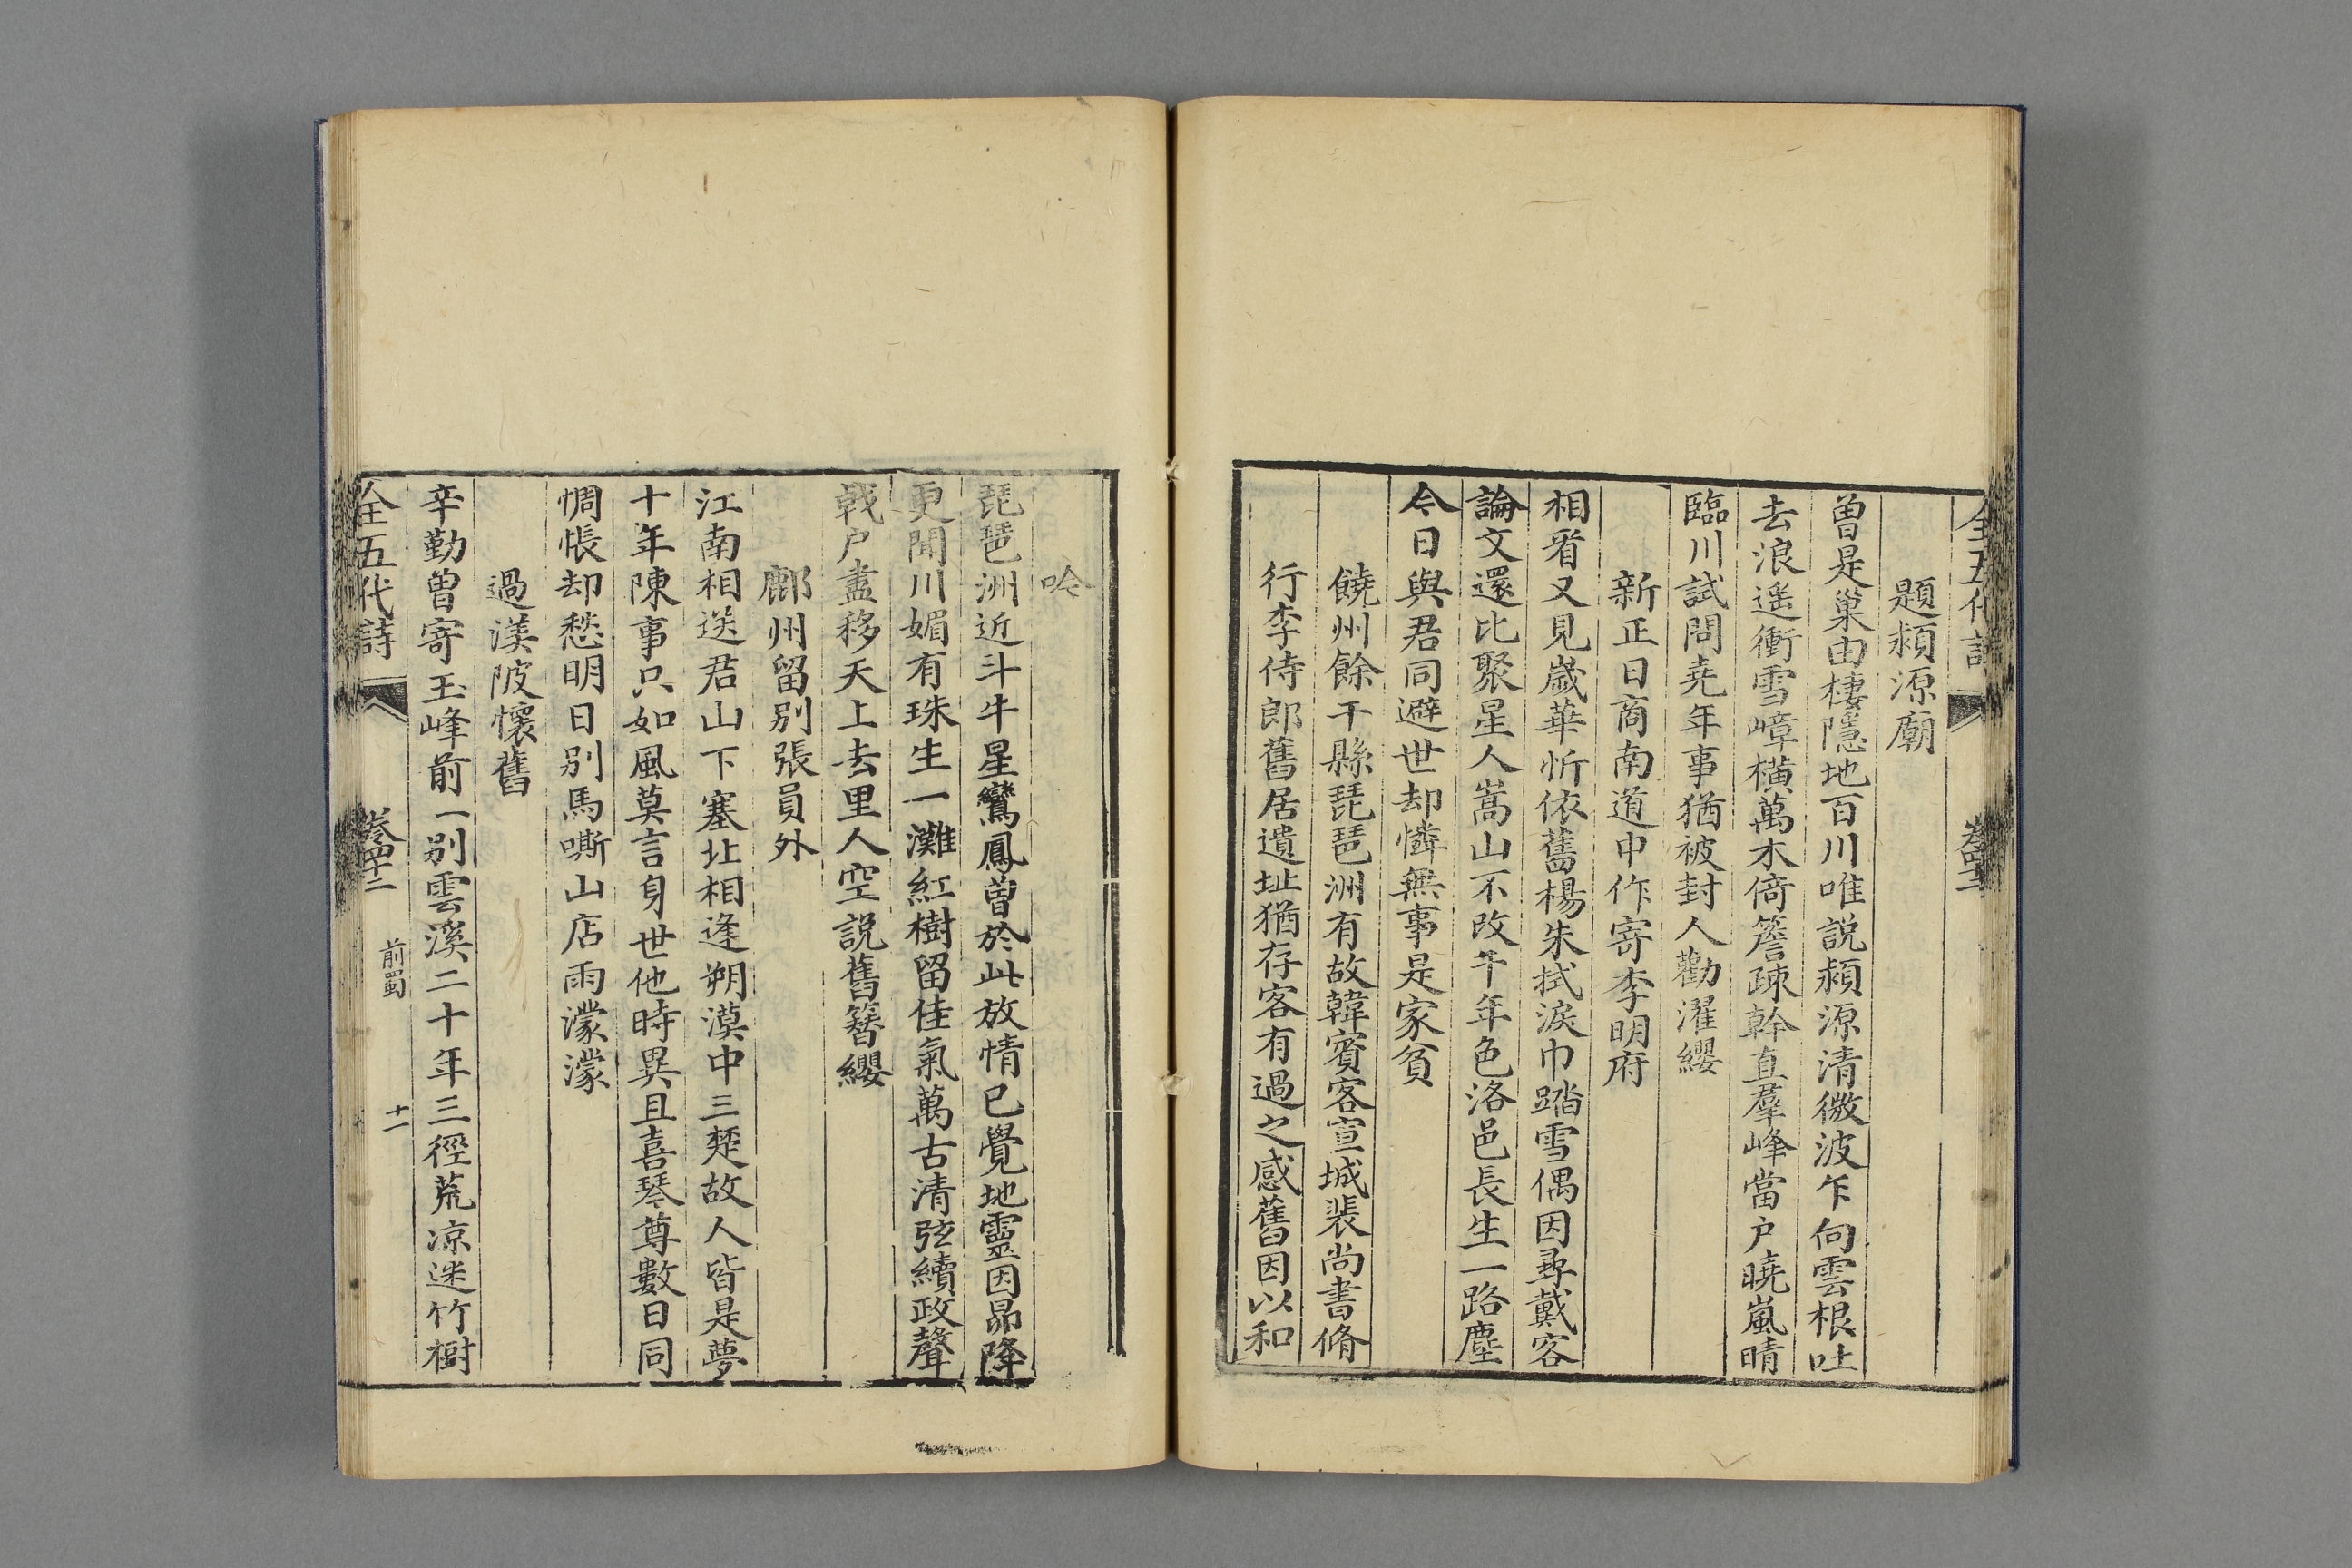 全五代詩
卷四十二
題潁源廟
曾是巢由棲隱地百川唯説潁源清微波乍向雲根吐
去浪遥衝雪嶂橫萬木倚簷疎幹直羣峰當户曉嵐晴
臨川試問堯年事猶被封人勸濯纓
新正日商南道中作寄李明府
相看又見歲華忻依舊楊朱拭淚巾踏雪偶因尋戴客
論文還比聚星人嵩山不改千年色洛邑長生一路塵
今日與君同避世却憐無事是家貧
饒州餘干縣琵琶洲有故韓賓客宣城裴尚書脩
行李侍郎舊居遺址猶存客有過之感舊因以和
吟
琵琶洲近斗牛星鸞鳳曾於此放情已覺地靈因昴降
更聞川媚有珠生一灘紅樹留佳氣萬古清弦續政聲
戟户盡移天上去里人空説舊簪纓
鄜州留别張員外
江南相送君山下塞北相逢朔漠中三楚故人皆是夢
十年陳事只如風莫言身世他時異且喜琴尊數日同
惆悵却愁明日别馬嘶山店雨濛濛
過渼陂懷舊
辛勤曾寄玉峰前一别雲溪二十年三徑荒凉迷竹樹
全五代詩
卷四十二
前蜀
十一